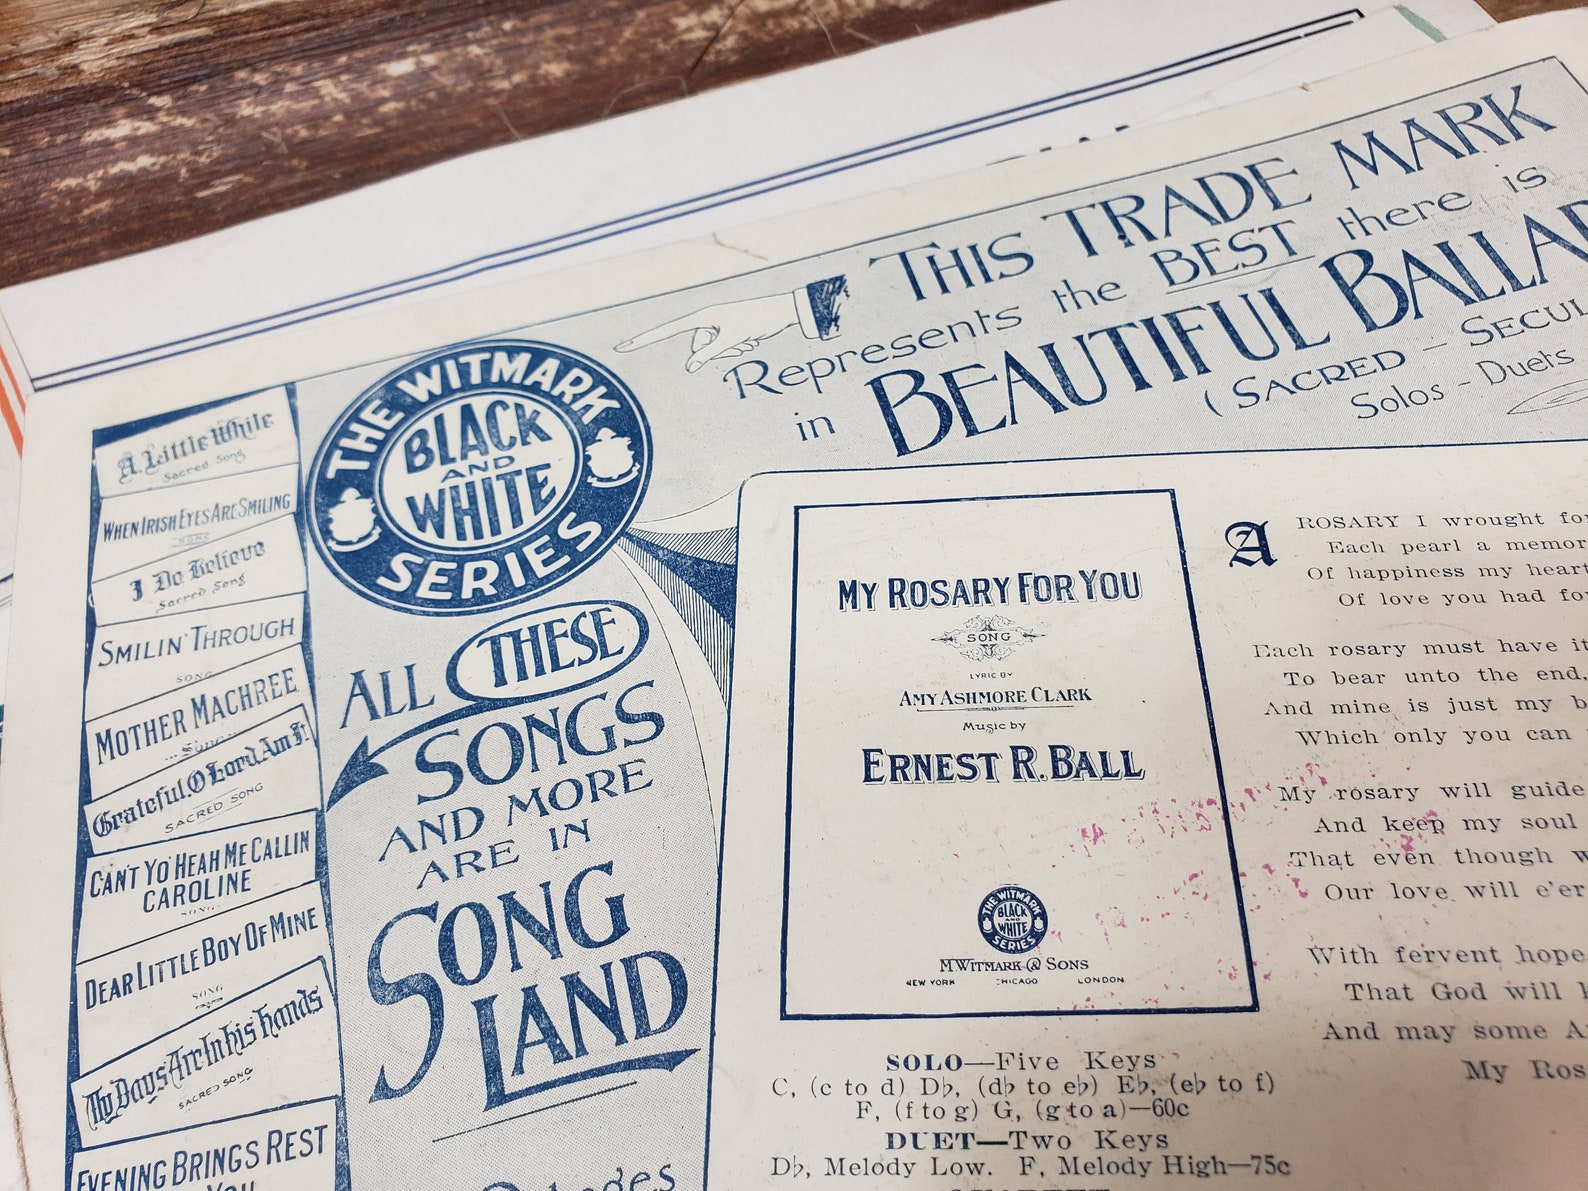 THIS TRADE MARK
Represents the BEST there is
in BEAUTIFUL BALLAD
(SACRED - SECUL
Solos - Duets
THE WITMARK
BLACK
AND
WHITE
SERIES
A Little While
Sacred Song
WHEN IRISH EYES ARE SMILING
SONG
I Do Believe
Sacred Song
SMILIN' THROUGH
SONG
MOTHER MACHREE
Song
Grateful, O Lord, Am I!
SACRED SONG
CAN'T YO' HEAH ME CALLIN
CAROLINE
SONG
DEAR LITTLE BOY OF MINE
SONG
My Days Are In his hands
SACRED SONG
EVENING BRINGS REST
YOU
ALL THESE
SONGS
AND MORE
ARE IN
SONG
LAND
MY ROSARY FOR YOU
SONG
LYRIC BY
AMY ASHMORE CLARK
Music by
ERNEST R. BALL
THE WITMARK
BLACK
AND
WHITE
SERIES
M WITMARK & SONS
NEW YORK CHICAGO LONDON
SOLO—Five Keys
C, (c to d) D♭, (d♭ to e♭) E♭, (e♭ to f)
F, (f to g) G, (g to a)—60c
DUET—Two Keys
D♭, Melody Low. F, Melody High—75c
A ROSARY I wrought for
Each pearl a memor
Of happiness my heart
Of love you had fo
Each rosary must have it
To bear unto the end,
And mine is just my b
Which only you can
My rosary will guide
And keep my soul
That even though w
Our love will e'er
With fervent hope
That God will
And may some A
My Ros